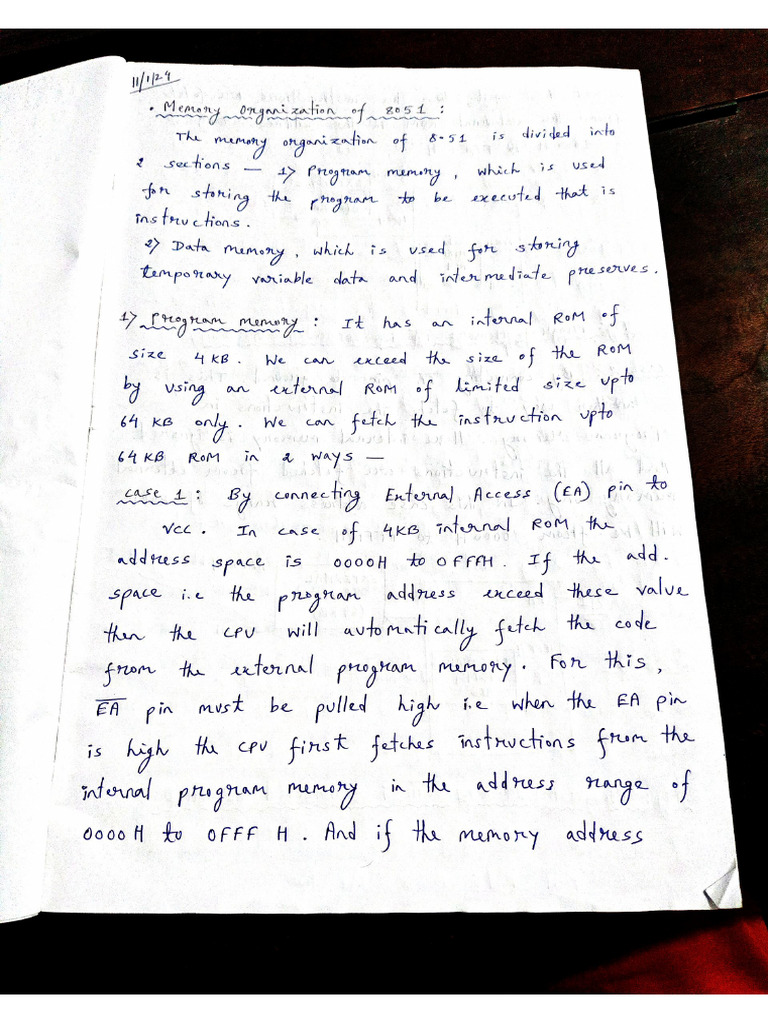 11/1/24
• Memory Organization of 8051 :
The memory organization of 8051 is divided into
2 sections — 1> Program memory, which is used
for storing the program to be executed that is
instructions.
2> Data memory, which is used for storing
temporary variable data and intermediate preserves.
1> Program memory : It has an internal ROM of
size 4 KB. We can exceed the size of the ROM
by using an external ROM of limited size upto
64 KB only. We can fetch the instruction upto
64 KB ROM in 2 ways —
case 1 : By connecting External Access (EA) pin to
Vcc. In case of 4KB internal ROM the
address space is 0000H to 0FFFH. If the add.
space i.e the program address exceed these value
then the CPU will automatically fetch the code
from the external program memory. For this,
E̅A̅ pin must be pulled high i.e when the EA pin
is high the CPU first fetches instructions from the
internal program memory in the address range of
0000 H to 0FFF H. And if the memory address